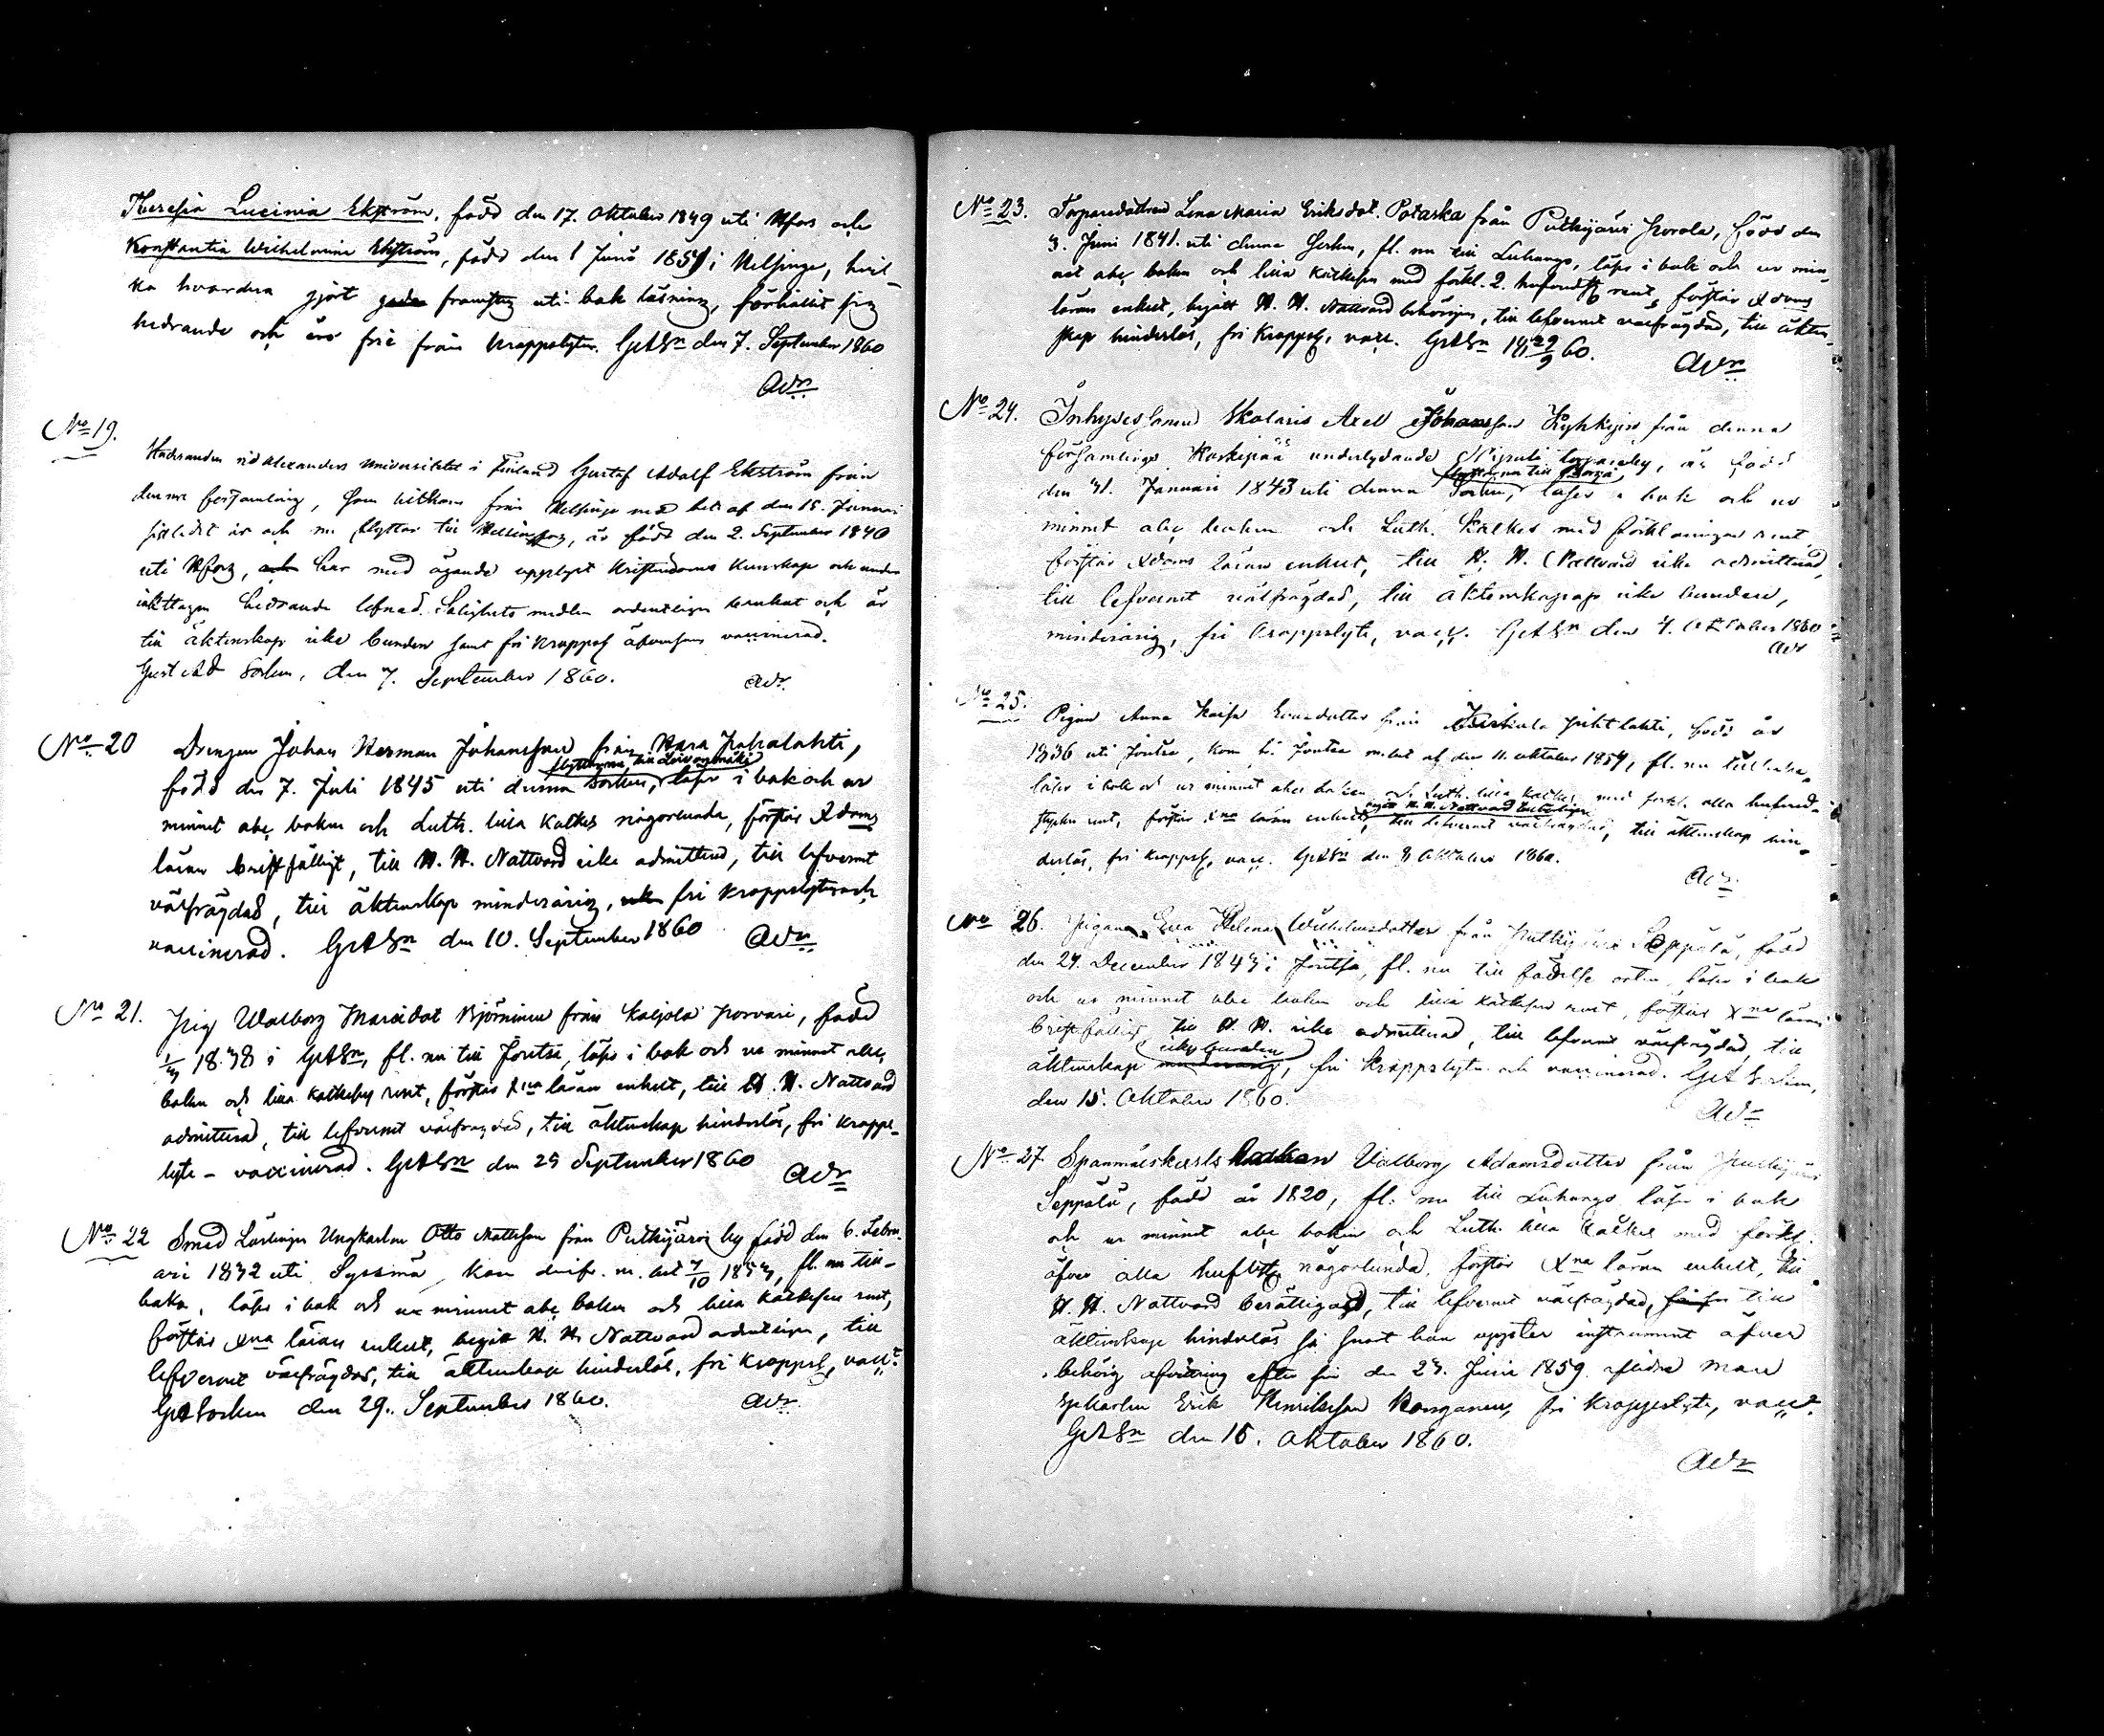 Theresia Lucinia Ekström, född den 17. Oktober 1849 uti Hfors och
Konstantia Wilhelmina Ekström, född den 1 Juni 1851 i Helsinge, hvil-
ka hvardera gjort goda framsteg uti bok läsning, förhållit sig
hedrande och äro frie från kroppslyten. GstASn den 7. September 1860
AWn
No 19.
Studeranden vid Alexanders Universitetet i Finland Gustaf Adolf Ekström från
denna församling, som hitkom från Helsinge med bet. af den 15. Januari
sistledit år och nu flyttar till Helsingfors, är född den 2. September 1840
uti Hfors, och har med ägande upplyst Kristendoms kunskap och under
iakttagen hedrande lefnad Salighets medlen ordentligen brukat och är
till äktenskap icke bunden samt fri kroppsf. äfvensom vaccinerad.
Gust Ad Socken, den 7. September 1860.
AWn
No 20 Drengen Johan Herman Johansson från Hara
flyttar nu till Leivonmäki
född den 7. Juli 1845 uti denna Socken, läser i bok och ur
minnet abc boken och Luth. lilla Katkes någorlunda, förstår Xdoms
läran bristfälligt, till H. H. Nattvard icke admitterad, till lefvernet
välfrägdad, till äktenskap minderårig, och fri kroppslyten och
vaccinerad. GstASn den 10. September 1860
AWn
No 21. Pig Walborg Mariædot Björninen från Kaljola Porvari, född
1838 i GstASn, fl. nu till Joutsa, läser i bok och ur minnet abc
boken och lilla Katkesen rent, förstår Xna läran enkelt, till H. H. Nattvard
admitterad, till lefvernet välfrägdad, till äktenskap hinderslös, fri kropps-
lyte - vaccinerad. GstASn den 29 September 1860
AWn
No 22 Smed Lärlingen Ungkarlen Otto Mattsson från Putkijärvi by född den 6. Febru-
ari 1832 uti Sysmä, kom därifr. m. bet 7/10 1857, fl. nu till-
baka, läser i bok och ur minnet abc boken och lilla Katkesen rent,
förstår Xna läran enkelt, begått H. H. Nattvard ordentligen, till
lefvernet välfrägdad, till äktenskap hinderslös, fri kroppsf, vacc.
GstASocken den 29. September 1860.
AWn
No 23. Torparedottren Lena Maria Eriksdot. Potaska från Putkijärvi Porola, född den
3. Juni 1841 uti denna Socken, fl. nu till Luhango, läser i bok och ur min-
net abc boken och lilla Katkesen med förkl. 2. hufvudst rent, förstår Xdoms
läran enkelt, begått H. H. Nattvard behörigen, till lefvernet välfrägdad, till äkten-
skap hinderslös, fri kroppsf. vacc. GstASn 18 29/9 60.
AWn
No 24. Inhyses sonen Skolaris Axel Johansson Kyhkynen från denna
församlings Koskipää underlydande torpareby, är född
flyttar nu till Borgå
den 31. Januari 1843 uti denna Socken, läser i bok och ur
minnet abc boken och Luth. Katkes med förklaringen rent
förstår Xdoms läran enkelt, till H. H. Nattvard icke admitterad,
till lefvernet välfrägdad, till äktenskap icke bunden,
minderårig, fri kroppslyte, vacc. GstASn den 4. Oktober 1860
AWn
No 25. Pigan Anna Kaisa Evasdotter från född år
1836 uti Joutsa, kom fr. Joutsa m. bet af den 11. Oktober 1859, fl. nu tillbaka,
läser i bok och ur minnet abc boken och Luth. lilla Katkes med förkl. alla hufvud-
begått H. H. Nattvard behörigen
stycken rent, förstår Xna läran enkelt, till lefvernet välfrägdad, till äktenskap hin-
derslös, fri kroppsf, vacc. GstASn den 8 Oktober 1860.
AWn
No 26. Pigan Eva Helena Wilhelmsdotter från Putkijärvi Seppälä, född
den 24. December 1843 i Joutsa, fl. nu till födelse orten, läser i bok
och ur minnet abc boken och lilla Katkesen rent, förstår Xna läran
bristfälligt, till H. H. icke admitterad, till lefvernet välfrägdad, till
icke bunden
äktenskap minderårig, fri kroppslyte och vaccinerad. GstASocken,
den 15. Oktober 1860.
AWn
No 27. Spanmålskarls Enkan Valborg Adamsdotter från Putkijärvi
Seppälä, född år 1820, fl. nu till Luhango läser i bok
och ur minnet abc boken och Luth. lilla Katkes med förkl.
öfver alla hufvst. någorlunda, förstår Xna läran enkelt, till
H. H. Nattvard berättigad, till lefvernet välfrägdad, till
äktenskap hinderslös så snart hon uppster instrument öfver
behörig afvittring efter sin den 23. Juni 1859 aflidne man
Erik Henriksson Kanganen, fri kroppslyte, vacc.
GstASn den 15. Oktober 1860.
AWn